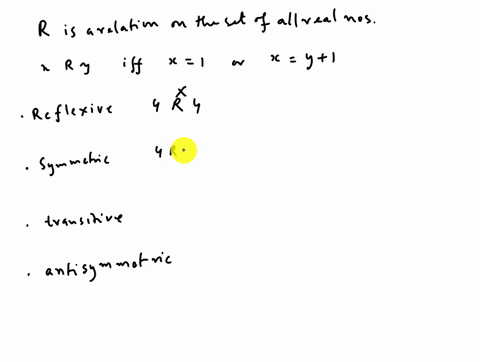 R is a relation on the set of all real nos.
x R y iff x = 1 or x = y + 1
. Reflexive 4 R 4
. Symmetric 4 R
. transitive
. antisymmetric